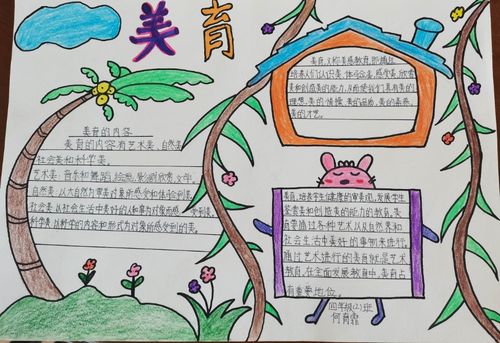 美育
美育的内容
美育的内容有艺术美、自然美
社会美和科学美。
艺术美：音乐和舞蹈,绘画,影剧欣赏,文学
自然美：以大自然为审美对象所感受和体验到美
社会美：以社会生活中美好的人和事为对象而感受到美
科学美：以科学的内容和形式为对象所感受到的美。
美育,又称美感教育,即通过
培养人们认识美、体验美、感受美、欣赏
美和创造美的能力,从而使我们具有美的
理想、美的情操、美的品格、美的素养、
美的才艺。
美育,培养学生健康的审美观,发展学生
鉴赏美和创造美的能力的教育,美
育要通过各种艺术以及自然界和
社会生活中美好的事物来进行,
通过艺术进行的美育就是艺术
教育,在全面发展教育中,美育占
有重要地位。
四年级(2)班
何育霏